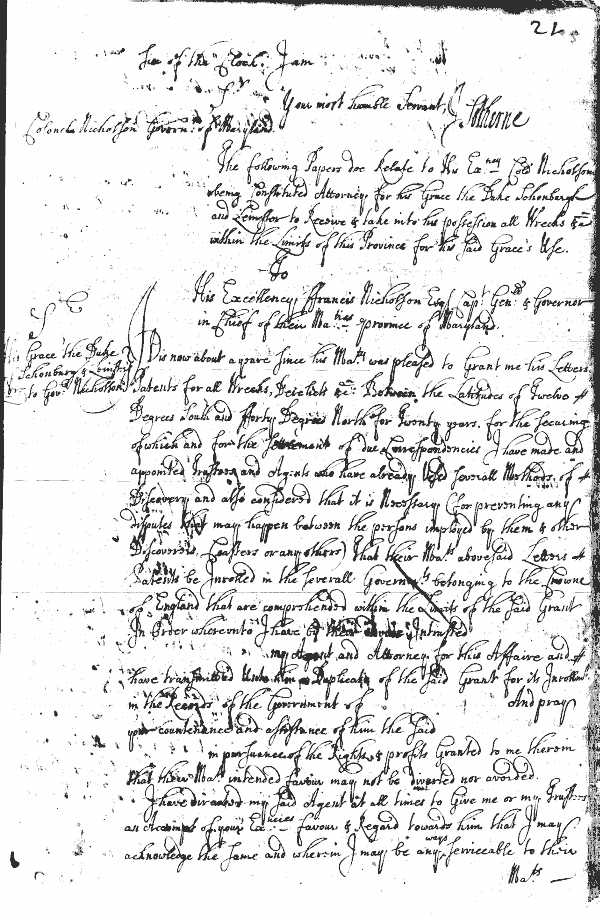 21.
hin of the Clock. I am
Sr
Your most humble Servant, J. Sotherne
Colonel Nicholson Govern: of Maryland.
The following Papers doe Relate to His Exncy Coll Nicholson
being Constituted Attorney for his Grace the Duke Schonbergh
and Leinster to Receive & take into his possession all Wrecks &ca
within the Limits of this Province for his said Grace's Use.
To
His Excellency ffrancis Nicholson Esqr Capt Genll & Governor
in Chief of their Maties province of Maryland.
His Grace the Duke
Schonburg & Leinster
to Govr Nicholson
It is now about a yeare since his Maty was pleased to Grant me his Letters
Patents for all Wrecks, Derelicts &ca Between the Latitudes of Twelve
Degrees South and fforty Degrees North for Twenty years, for the secureing
of which and for the settlement of due Correspondencies I have made and
appointed Trustees and Agents who have already Used severall Methods of
Discovery and also considered that it is Necessary (for preventing any
disputes that may happen between the persons imployed by them & other
Discoverers, Coasters or any others) that their Mats abovesaid Letters
Patents be Inrolled in the severall Governmts belonging to the Crowne
of England that are comprehended within the Limits of the said Grant
In Order whereunto I have Intrusted
my Agent and Attorney for this Affaire and
have transmitted Unto him a Duplicate of the said Grant for its Inrollmt
in the Records of the Government of And pray
your countenance and assistance of him the said
in persuance of the Rights & profits Granted to me therein
that their Mats intended favour may not be diverted nor avoided.
I have directed my said Agent at all times to Give me or my Trustees
an Accompt of your Excies favour & Regard towards him that I may
acknowledge the same and wherein I may be any ways serviceable to their
Mats